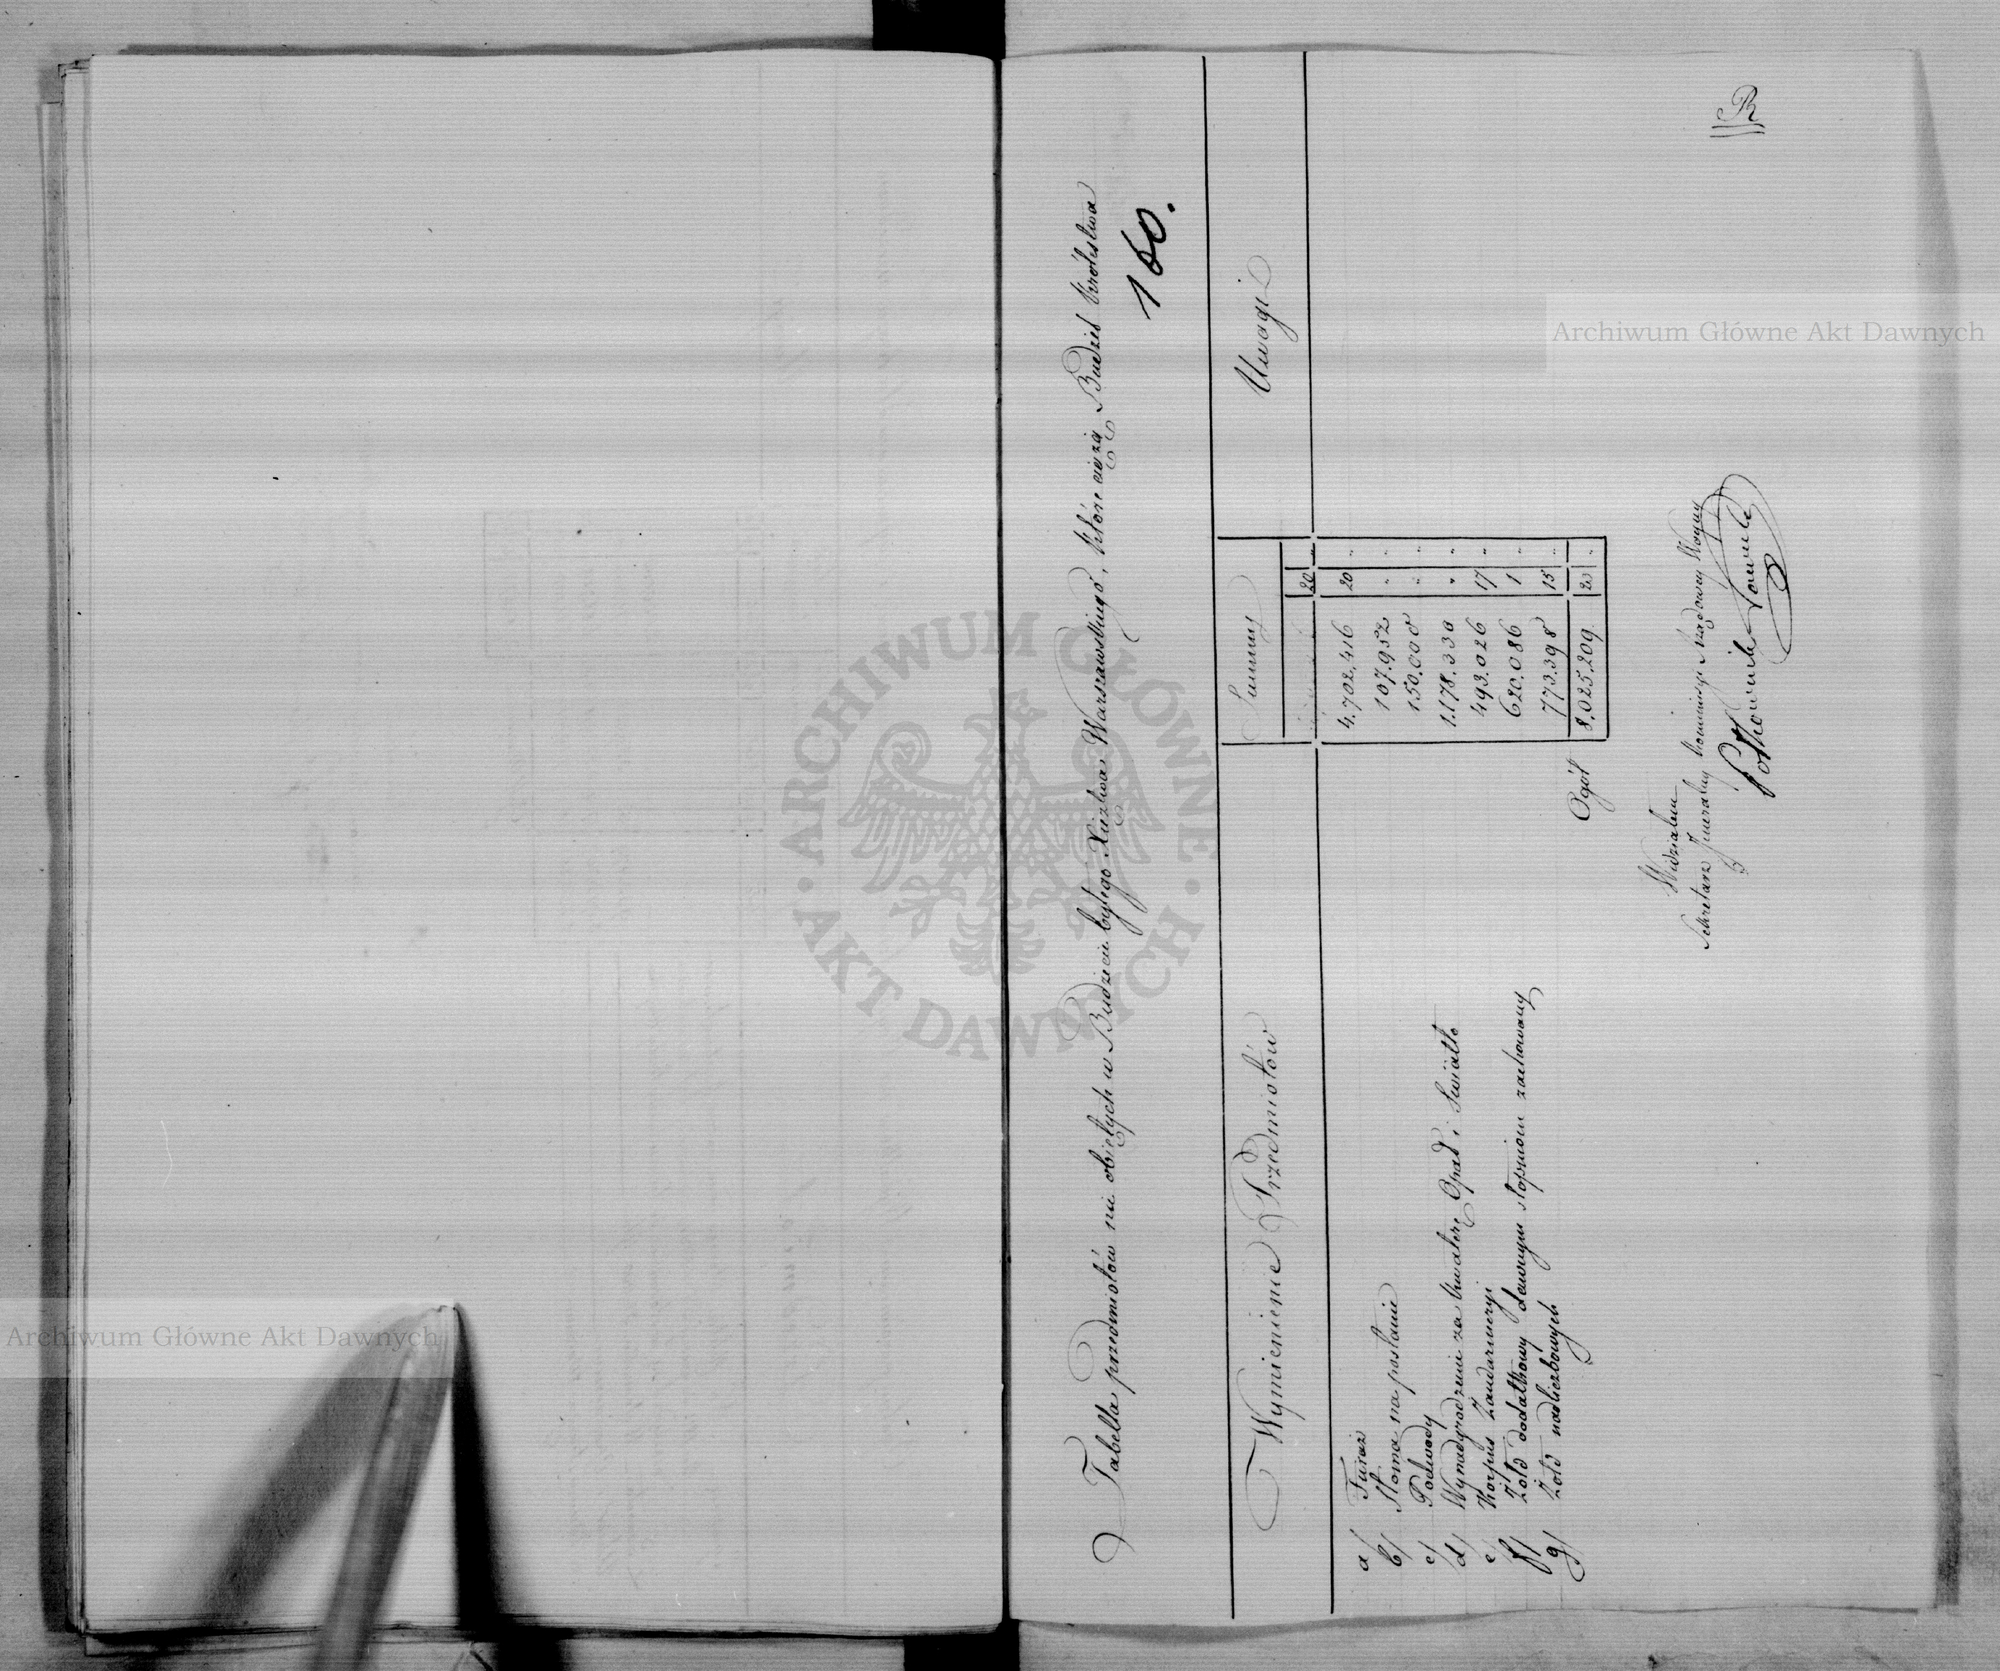 Tabella przedmiotów nie objętych w Budżecie byłego Xięztwa Warszawskiego, które ciężą Budżet Królestwa
160.
Wymienienie Przedmiotów
Summy
Uwagi
20 "
a/ Furaż 4.702.416 20 "
b/ Słoma na posłanie 107.952 " "
c/ Podwody 150.000 " "
d/ Wynadgrodzenie za kwaterę Opał i Swiatło 1.178.330 " "
e/ Korpus Żandarmeryi 493.026 17 "
f/ Żołd dodatkowy dawnym stopniom zachowany 620.086 1 "
g/ Żołd nadliczbowych 773.398 15 "
Ogół 8.025.209 20 "
Widziałem
Sekretarz Jeneralny Kommissyi Rządowey Woyny
Archiwum Główne Akt Dawnych
Archiwum Główne Akt Dawnych
ARCHIWUM GŁÓWNE · AKT DAWNYCH ·